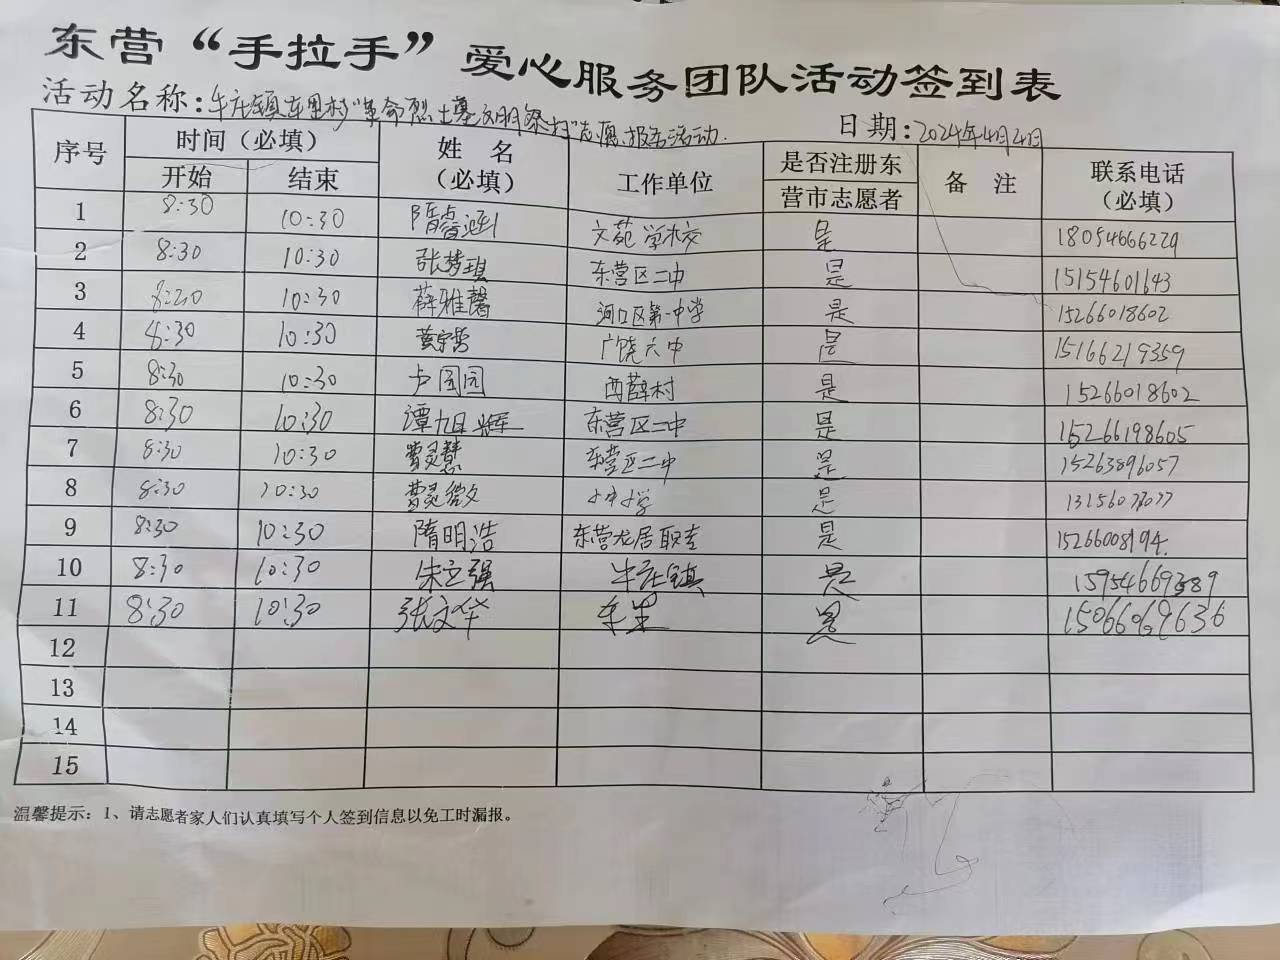 东营“手拉手”爱心服务团队活动签到表
活动名称：牛庄镇东里村“革命烈士墓文明祭扫”志愿服务活动. 日期：2024年4月4日
序号 时间（必填） 姓名（必填） 工作单位 是否注册东营市志愿者 备注 联系电话（必填）
开始 结束
1 8:30 10:30 隋睿涵 文苑学校 是 18054666229
2 8:30 10:30 张梦琪 东营区二中 是 15154601643
3 8:20 10:30 薛雅馨 河口区第一中学 是 15266018602
4 8:30 10:30 黄宇哲 广饶六中 是 15166219359
5 8:30 10:30 卢园园 西薛村 是 15266018602
6 8:30 10:30 谭旭辉 东营区二中 是 15266198605
7 8:30 10:30 曹灵慧 东营区二中 是 15263896057
8 8:30 10:30 曹灵微 小学 是
9 8:30 10:30 隋明浩 东营龙居职专 是 15266008194.
10 8:30 10:30 朱立强 牛庄镇 是 15954669389
11 8:30 10:30 张文华 是 15066069636
12
13
14
15
温馨提示：1、请志愿者家人们认真填写个人签到信息以免工时漏报。